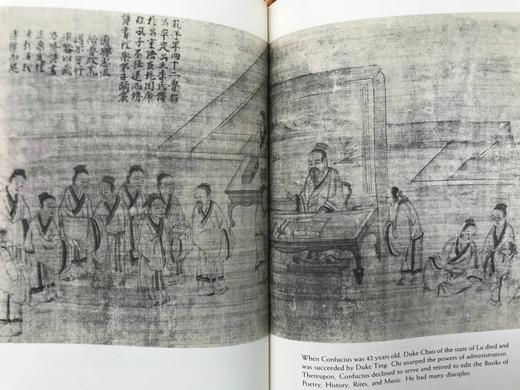 孔子年四十二魯昭
公卒定公立季氏僭
於公室陪臣執國命
故孔子不仕退而脩
詩書禮樂弟子彌衆
When Confucius was 42 years old, Duke Chao of the state of Lu died and
was succeeded by Duke Ting. Chi usurped the powers of administration
Thereupon, Confucius declined to serve and retired to edit the Books of
Poetry, History, Rites, and Music. He had many disciples.